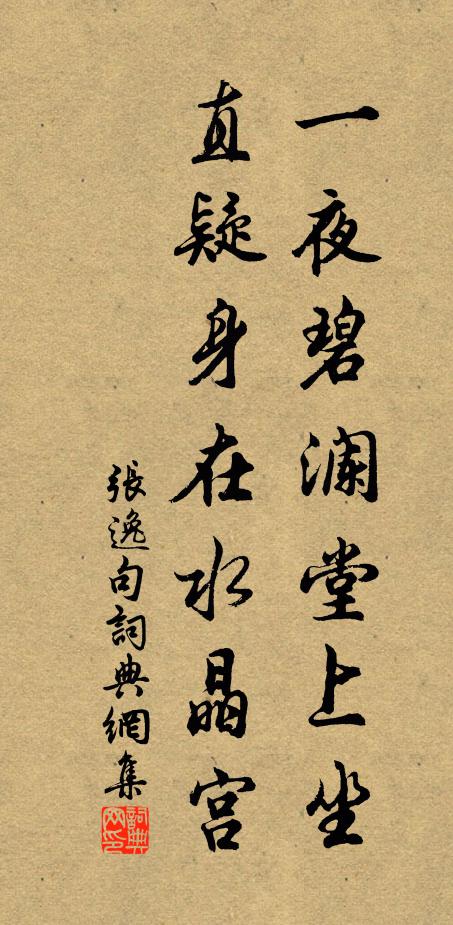 一夜碧澜堂上坐
直疑身在水晶宫
張逸句詞典網集
詞典
网印